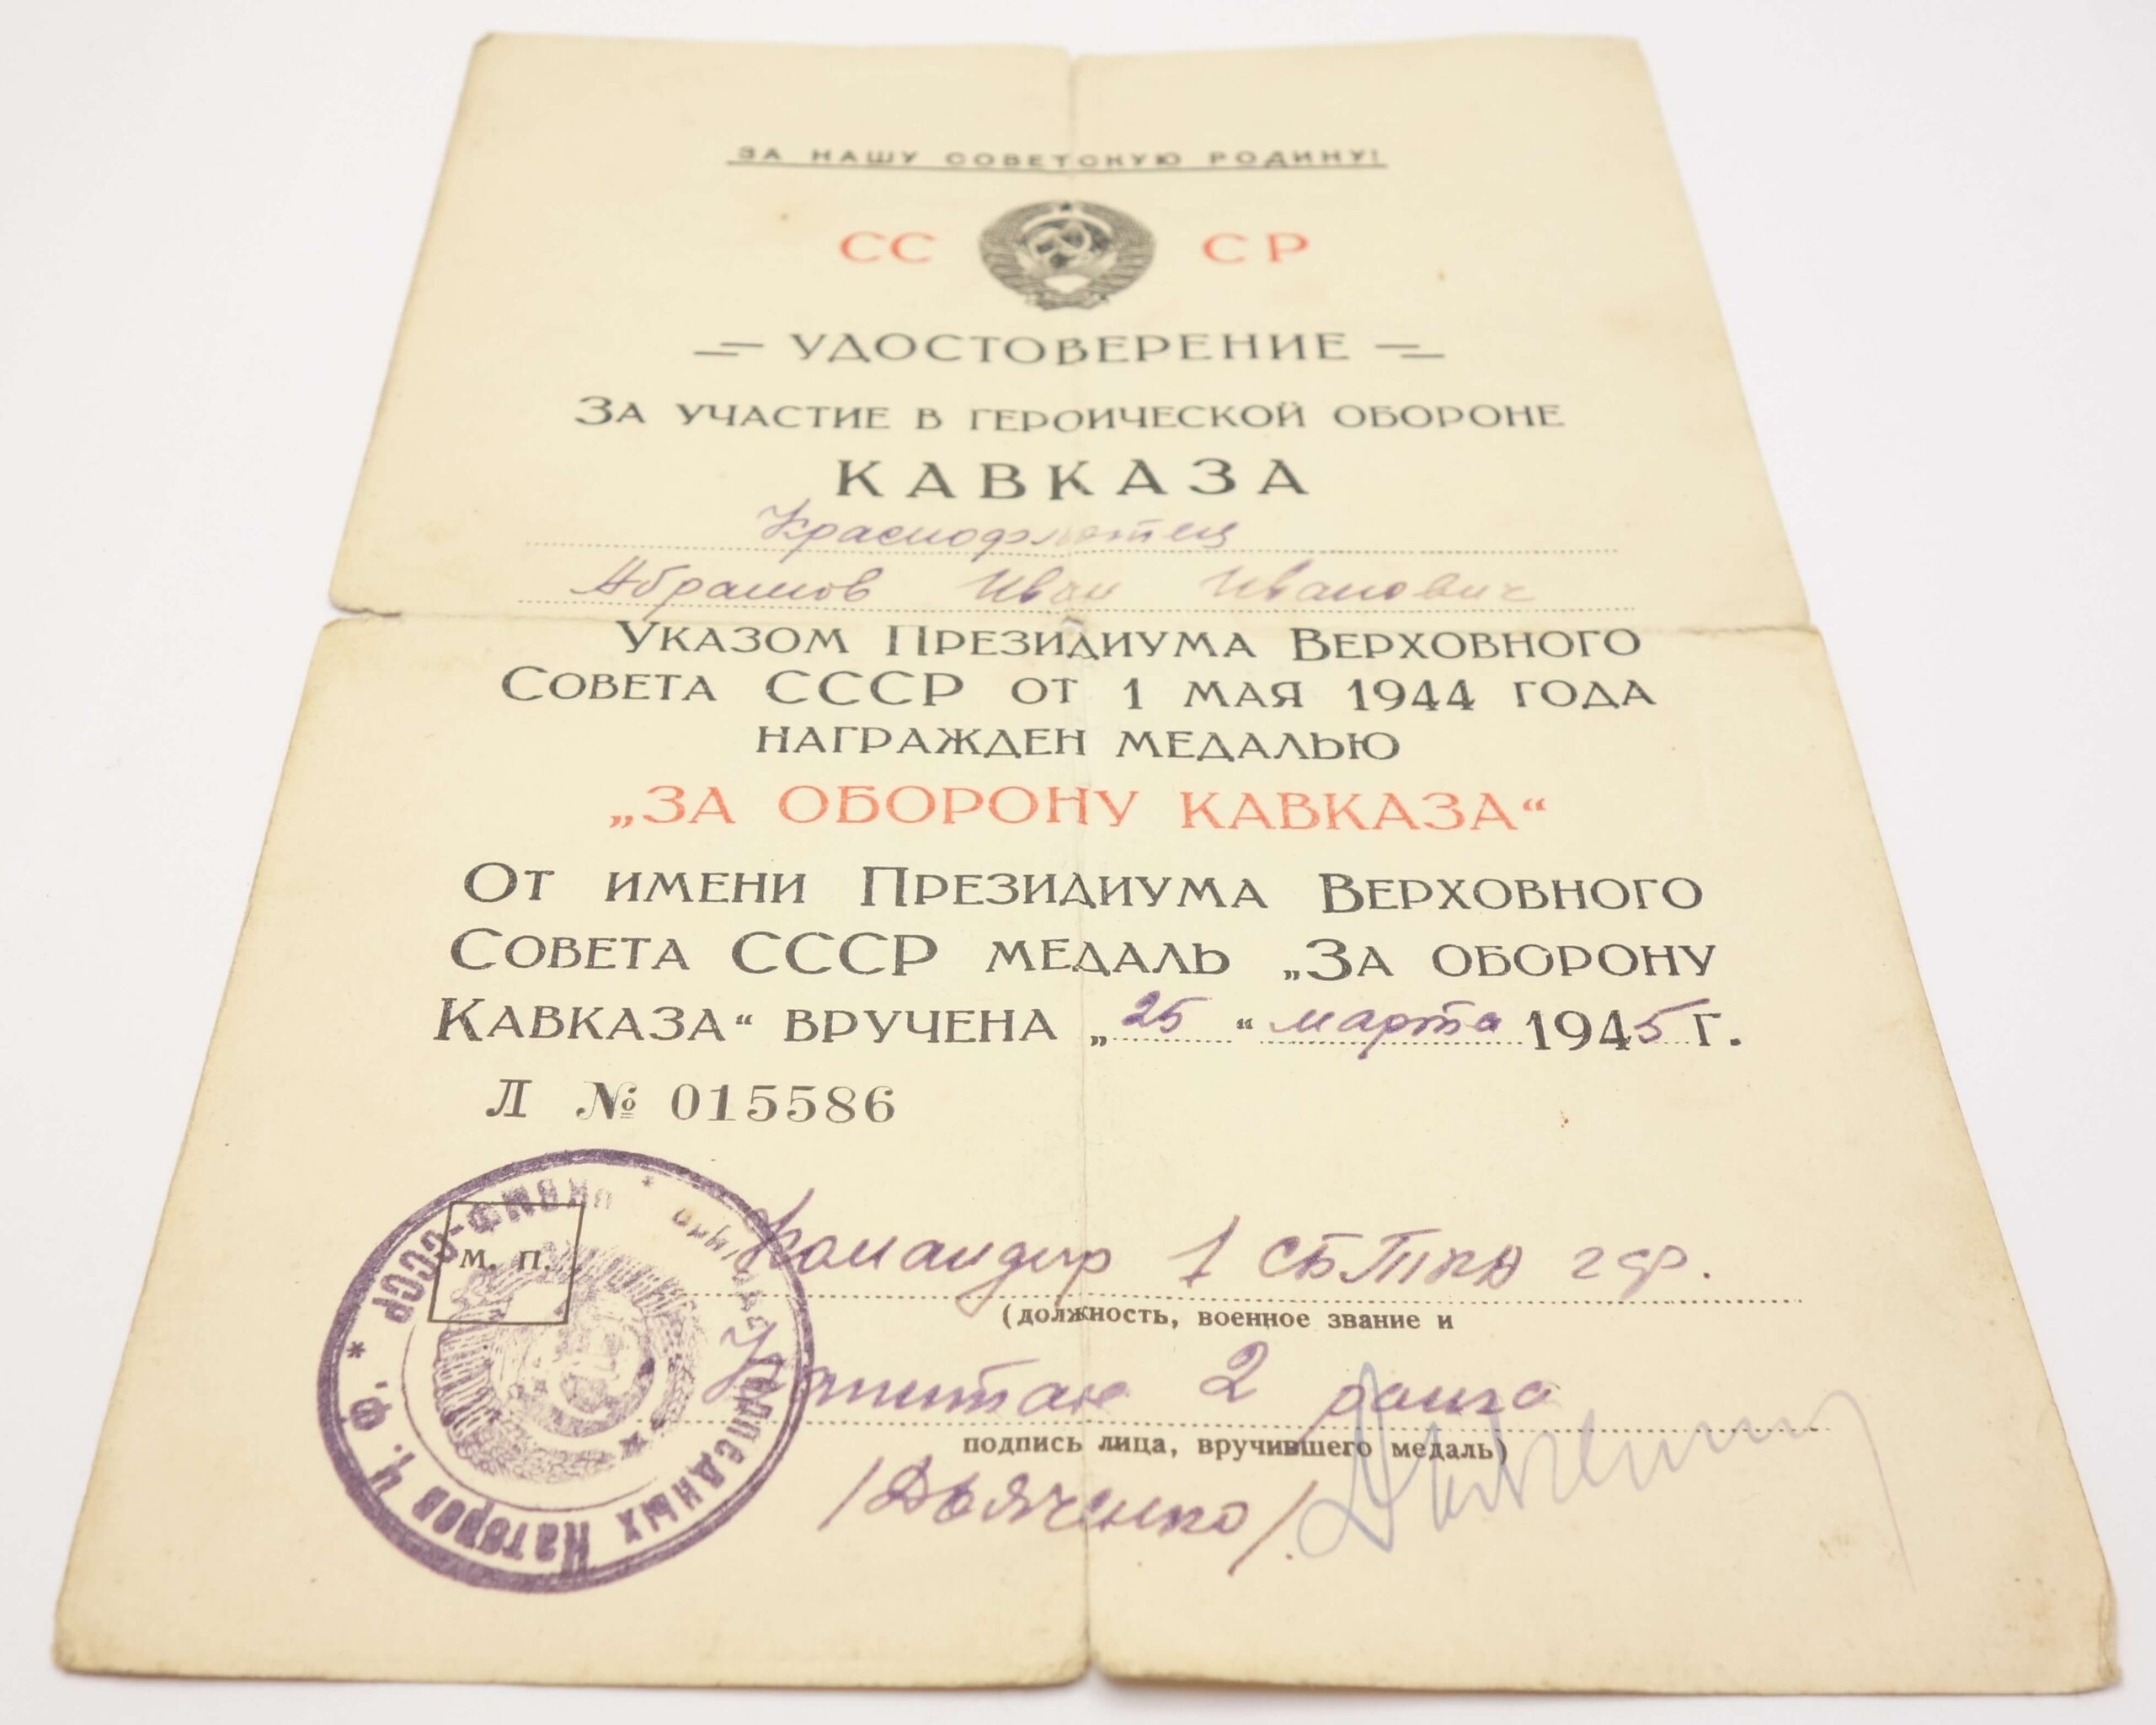 ЗА НАШУ СОВЕТСКУЮ РОДИНУ!
СС СР
УДОСТОВЕРЕНИЕ
ЗА УЧАСТИЕ В ГЕРОИЧЕСКОЙ ОБОРОНЕ
КАВКАЗА
Краснофлотец
Абрамов Иван Иванович
УКАЗОМ ПРЕЗИДИУМА ВЕРХОВНОГО
СОВЕТА СССР ОТ 1 МАЯ 1944 ГОДА
НАГРАЖДЕН МЕДАЛЬЮ
„ЗА ОБОРОНУ КАВКАЗА“
ОТ ИМЕНИ ПРЕЗИДИУМА ВЕРХОВНОГО
СОВЕТА СССР МЕДАЛЬ „ЗА ОБОРОНУ
КАВКАЗА“ ВРУЧЕНА „25“ марта 1945 Г.
Л № 015586
М. П.
НКВМФ-СССР
Торпедных Катеров Ч. Ф. *
Командир 1 СБТКА
(должность, военное звание и
Капитан 2 ранга
подпись лица, вручившего медаль)
/Дьяченко/